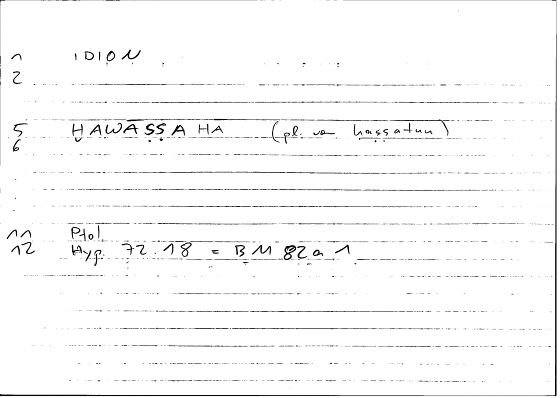 1 IDION
2
5 ḪAWĀṢṢAHA (pl. van ḫaṣṣatun)
6
11 Ptol
12 Hyp. 72.18 = BM 82a1